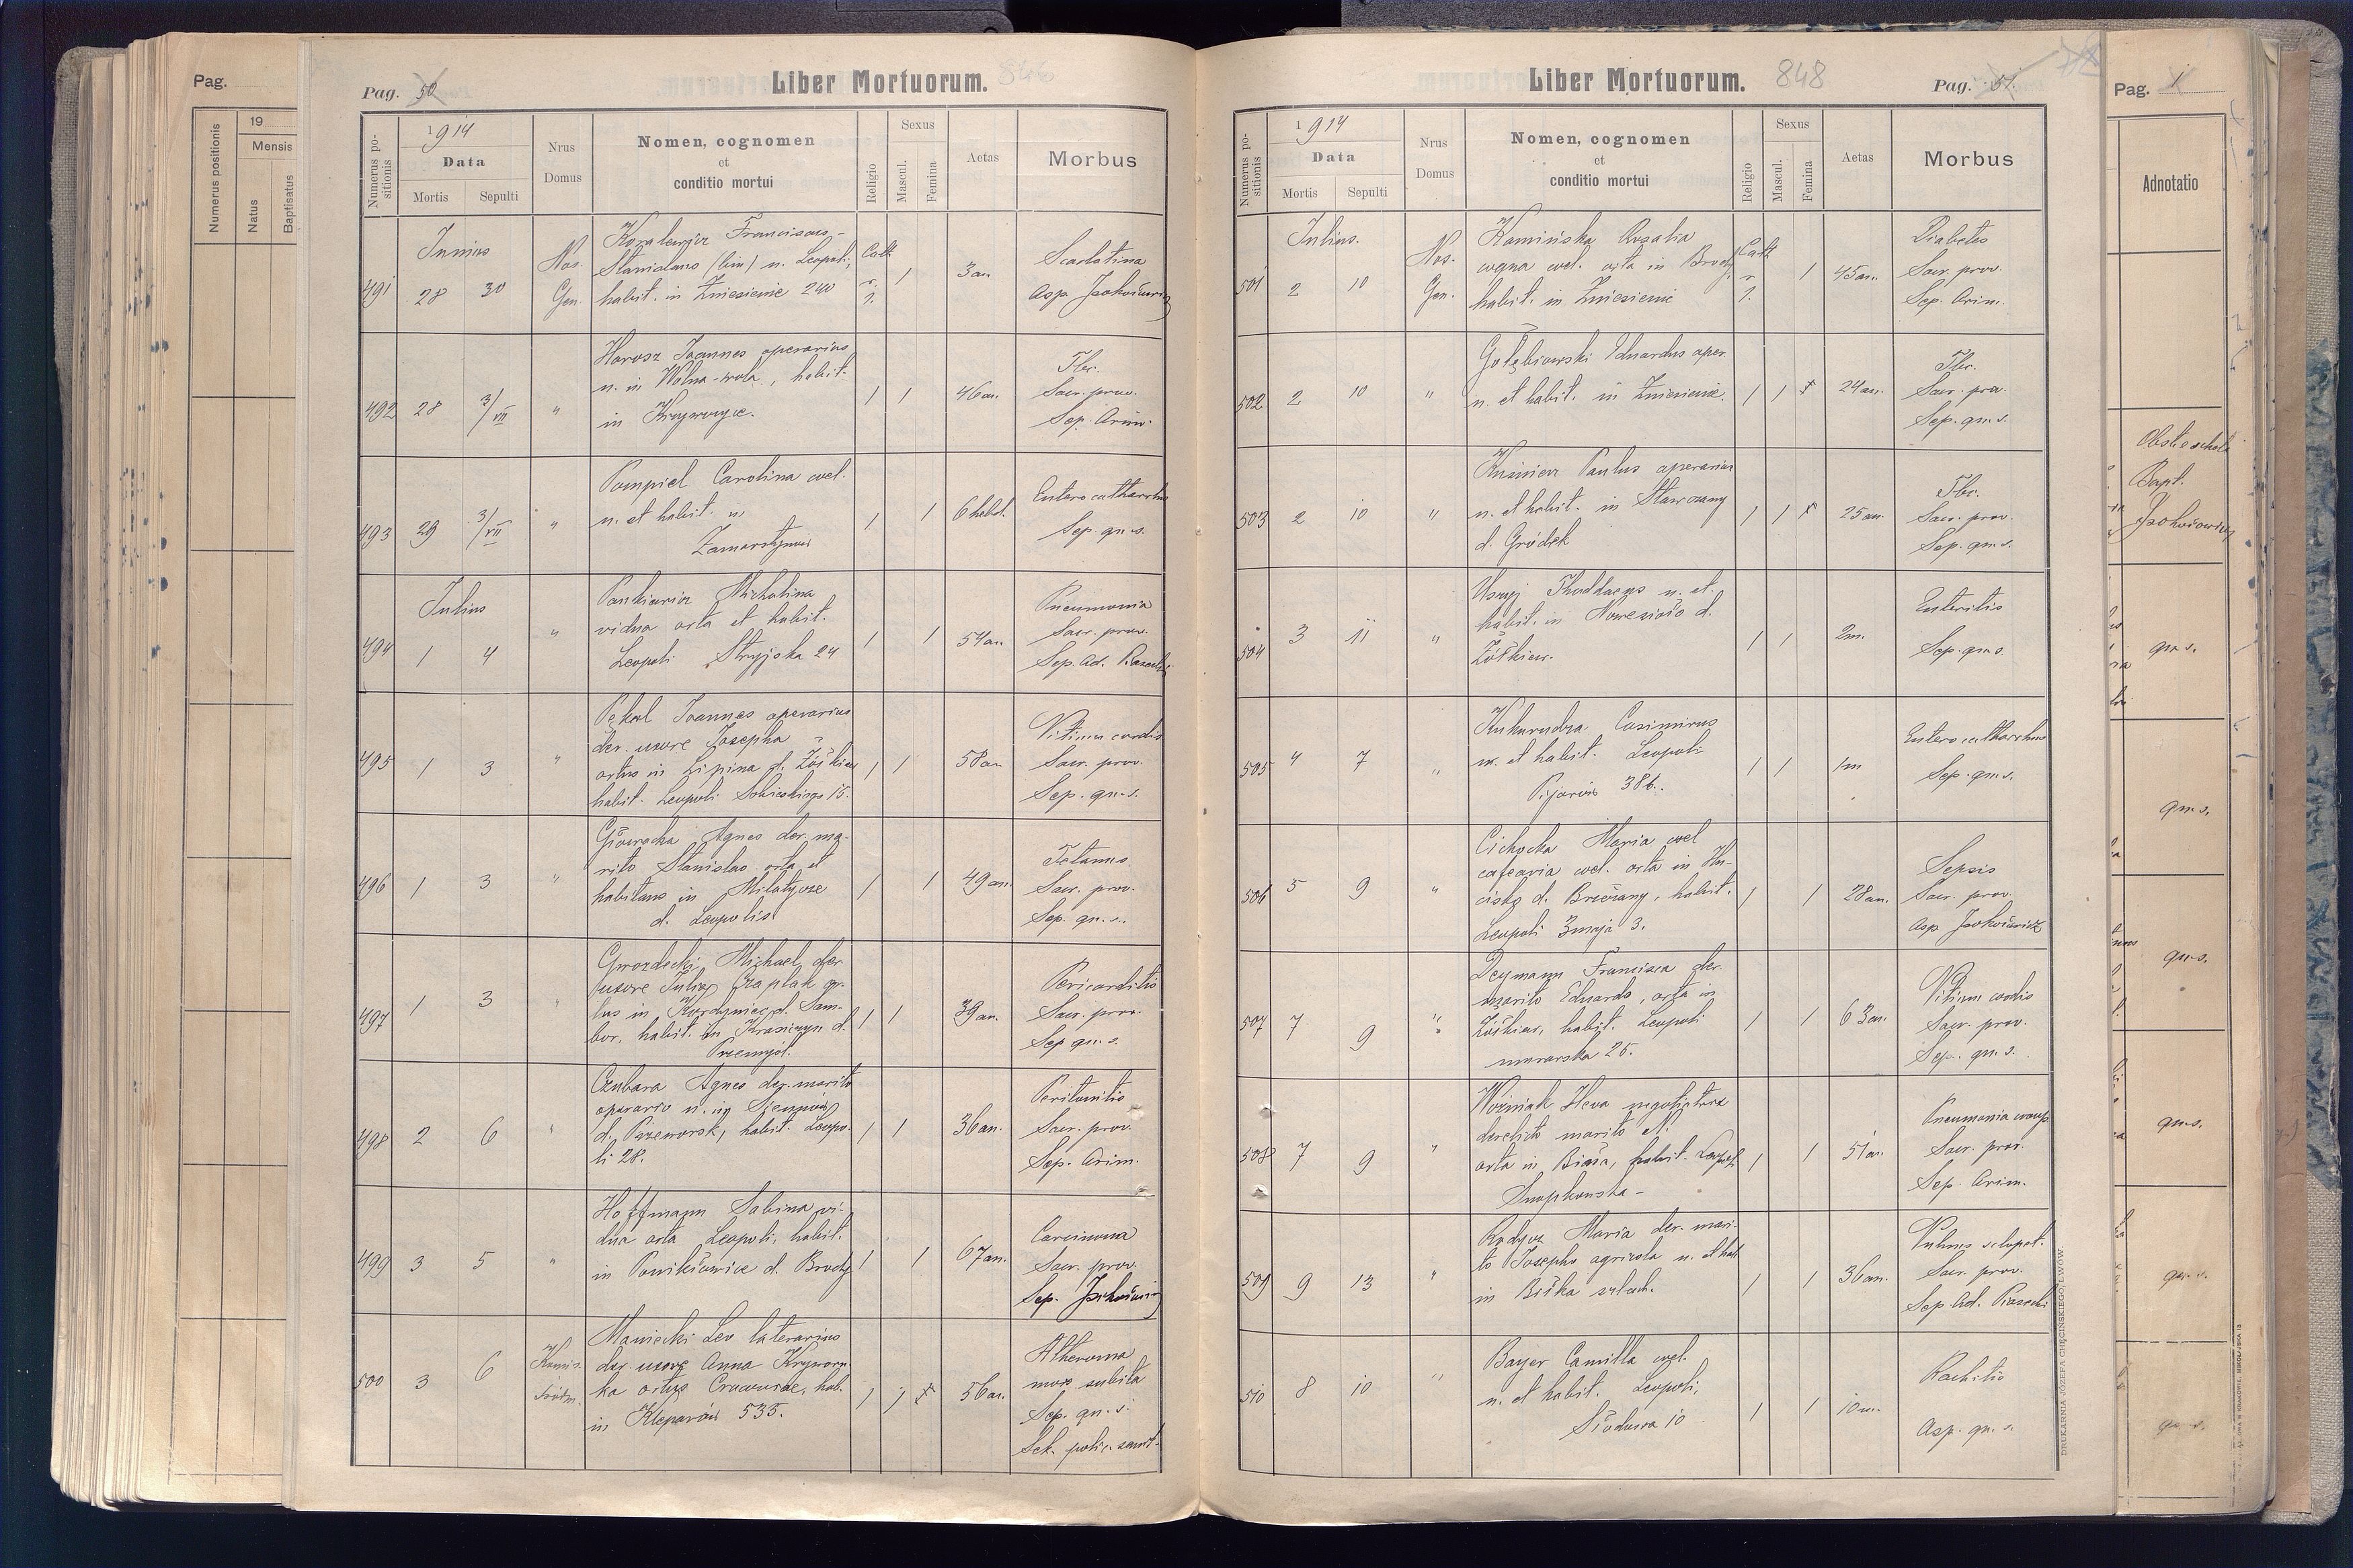 Pag.
19
Mensis
Numerus positionis
Natus
Baptisatus
Pag. 50
Liber Mortuorum. 846
Numerus positionis
1914
Data
Mortis
Sepulti
Nrus Domus
Nomen, cognomen
et
conditio mortui
Religio
Sexus
Mascul.
Femina
Aetas
Morbus
Junius
491 28 30
Nos. Gen.
Franciscus-
Stanislaus (bin) n. Leopoli,
habit. in Zniesienie 240
Cath. r. 1. 1
3 an.
Scarlatina
Asp.
492 28 3/VII "
Harosz Joannes operarius
n. in Wólna-wola, habit.
in Krzywczyce.
1 1
46 an.
Tbc.
Sacr. prov.
Sep. Arim.
493 29 3/VII "
Pompiel Carolina coel.
n. et habit. in
Zamarstynów
1 1
6 hebd.
Enterocatharrhus
Sep. qu. s.
Julius
494 1 4 "
Pankiewicz Michalina
vidua orta et habit.
Leopoli Stryjska 24
1 1
54 an.
Pneumonia
Sacr. prov.
Sep. Ad. Piasecki
495 1 3 "
Pękal Joannes operarius
der. uxore Josepha
ortus in Lipina d. Żółkiew
habit. Leopoli Sobieskiego 15.
1 1
58 an.
Vitium cordis
Sacr. prov.
Sep. qu. s.
496 1 3 "
Główacka Agnes der. ma-
rito Stanislao orta et
habitans in Milatycze
d. Leopolis
1 1
49 an.
Tetanus
Sacr. prov.
Sep. qu. s.
497 1 3 "
Gwozdecki Michael, der.
uxore Julia Czaplak or-
tus in d. Sam-
bor, habit. in Krasiczyn d.
Przemyśl.
1 1
39 an.
Pericarditis
Sacr. prov.
Sep. qu. s.
498 2 6 "
Czubara Agnes der. marito
operario n. in Siennów
d. Przeworsk, habit. Leopo-
li 28.
1 1
36 an.
Peritonitis
Sacr. prov.
Sep. Arim.
499 3 5 "
Hoffmann Sabina vi-
dua orta Leopoli, habit.
in Ponikowice d. Brody
1 1
67 an.
Carcinoma
Sacr. prov.
Sep.
500 3 6
Leo laterarius
der. uxore Anna
ka ortus Cracoviae, hab.
in Kleparów 535.
1 1
56 an.
Atheroma
mors subita
Sep. qu. s.
Sek. polic. sanit.
Liber Mortuorum. 848
Pag. 51.
Numerus positionis
1914
Data
Mortis
Sepulti
Nrus Domus
Nomen, cognomen
et
conditio mortui
Religio
Sexus
Mascul.
Femina
Aetas
Morbus
Julius.
501 2 10
Nos. Gen.
Kamińska Rosalia
coel. orta in Brody
habit. in Zniesienie
Cath. r. 1. 1
45 an.
Diabetes
Sacr. prov.
Sep. Arim.
502 2 10 "
Gołębiowski Eduardus oper.
n. et habit. in Zniesienie.
1 1
24 an.
Tbc.
Sacr. prov.
Sep. qu. s.
503 2 10 "
Kuśnierz Paulus operarius
n. et habit. in Stawczany
d. Gródek
1 1
25 an.
Tbc.
Sacr. prov.
Sep. qu. s.
504 3 11 "
Thaddaeus n. et
habit. in Nowesioło d.
Żółkiew.
1 1
2 m.
Enteritis
Sep. qu. s.
505 4 7 "
Kukurudza Casimirus
n. et habit. Leopoli
Pijarów 38b.
1 1
1 m
Enterocatharrhus
Sep. qu. s.
506 5 9 "
Cichocka Maria coel
cafearia coel. orta in Hu-
cisko d. Brzeżany, habit.
Leopoli 3 maja 3.
1 1
28 an.
Sepsis
Sacr. prov.
Asp.
507 7 9 "
Deymann Francisca der.
marito Eduardo, orta in
Żółkiew, habit. Leopoli
murarska 25.
1 1
63 an.
Vitium cordis
Sacr. prov.
Sep. qu. s.
508 7 9 "
Woźniak Heva negotiatrix
derelicto marito N.
orta in Biała, habit. Leopoli
Snopkowska -
1 1
51 an.
Pneumonia croup
Sacr. prov.
Sep. Arim.
509 9 13 "
Maria der. mari-
to Josepho agricola n. et hab.
in Biłka szlach.
1 1
36 an.
Vulnus sclopet.
Sacr. prov.
Sep. Ad. Piasecki
510 8 10 "
Bayer Camilla coel.
n. et habit. Leopoli,
Słodowa 10
1 1
10 m.
Rachitis
Asp. qu. s.
DRUKARNIA JÓZEFA CHĘCIŃSKIEGO, LWÓW.
Pag. 1
Adnotatio
Bapt.
qu. s.
qu. s.
qu. s.
qu. s.
qu. s.
qu. s.